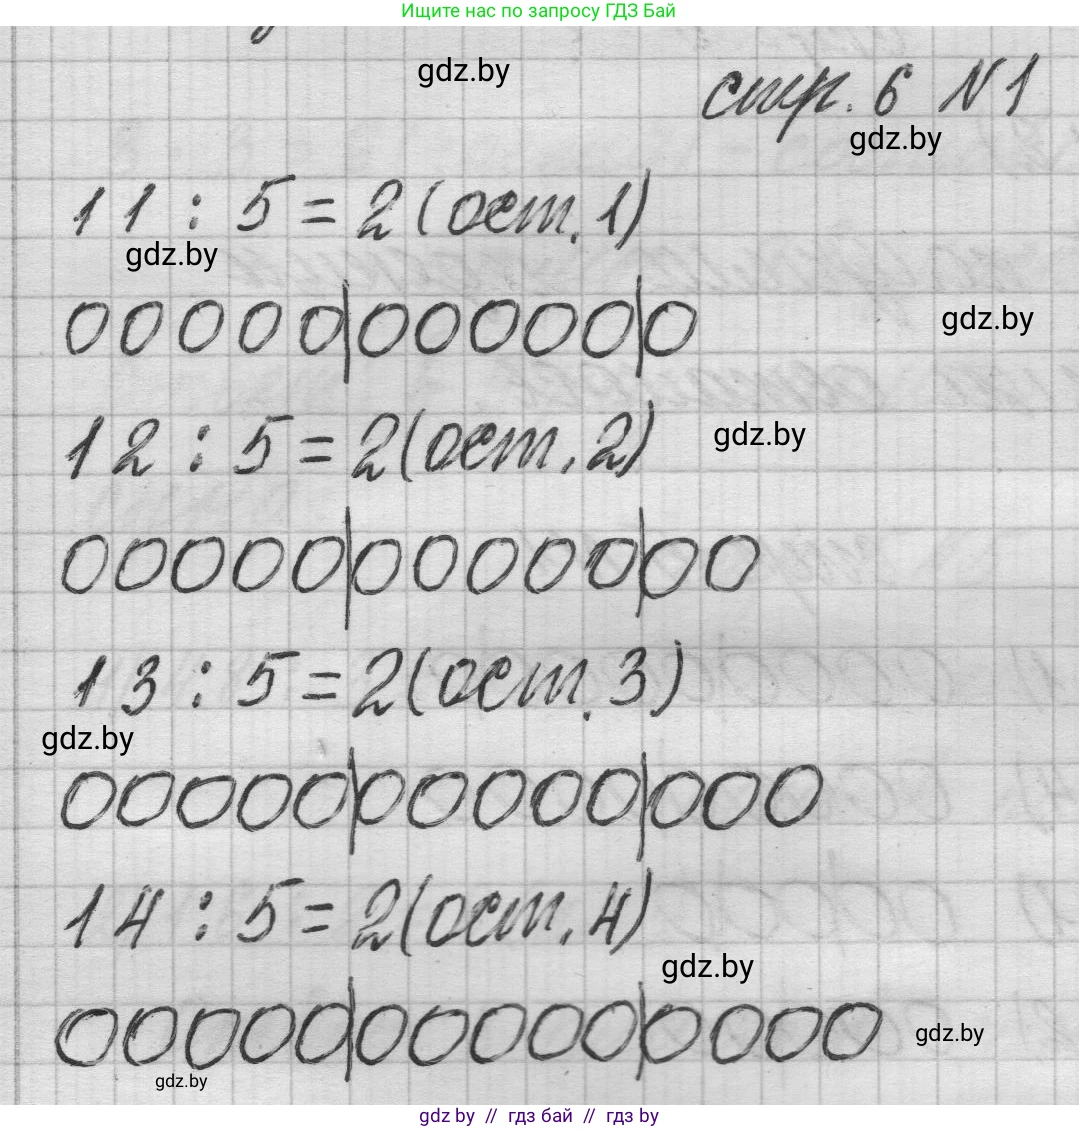 Ищите нас по запросу ГДЗ Бай
gdz.by
стр. 6 N 1
gdz.by
11 : 5 = 2 (ост. 1)
gdz.by
00000|00000|0
gdz.by
12 : 5 = 2 (ост. 2)
gdz.by
00000|00000|00
13 : 5 = 2 (ост. 3)
gdz.by
00000|00000|000
14 : 5 = 2 (ост. 4)
gdz.by
00000|00000|0000
gdz.by
gdz.by
gdz.by // гдз бай // гдз by